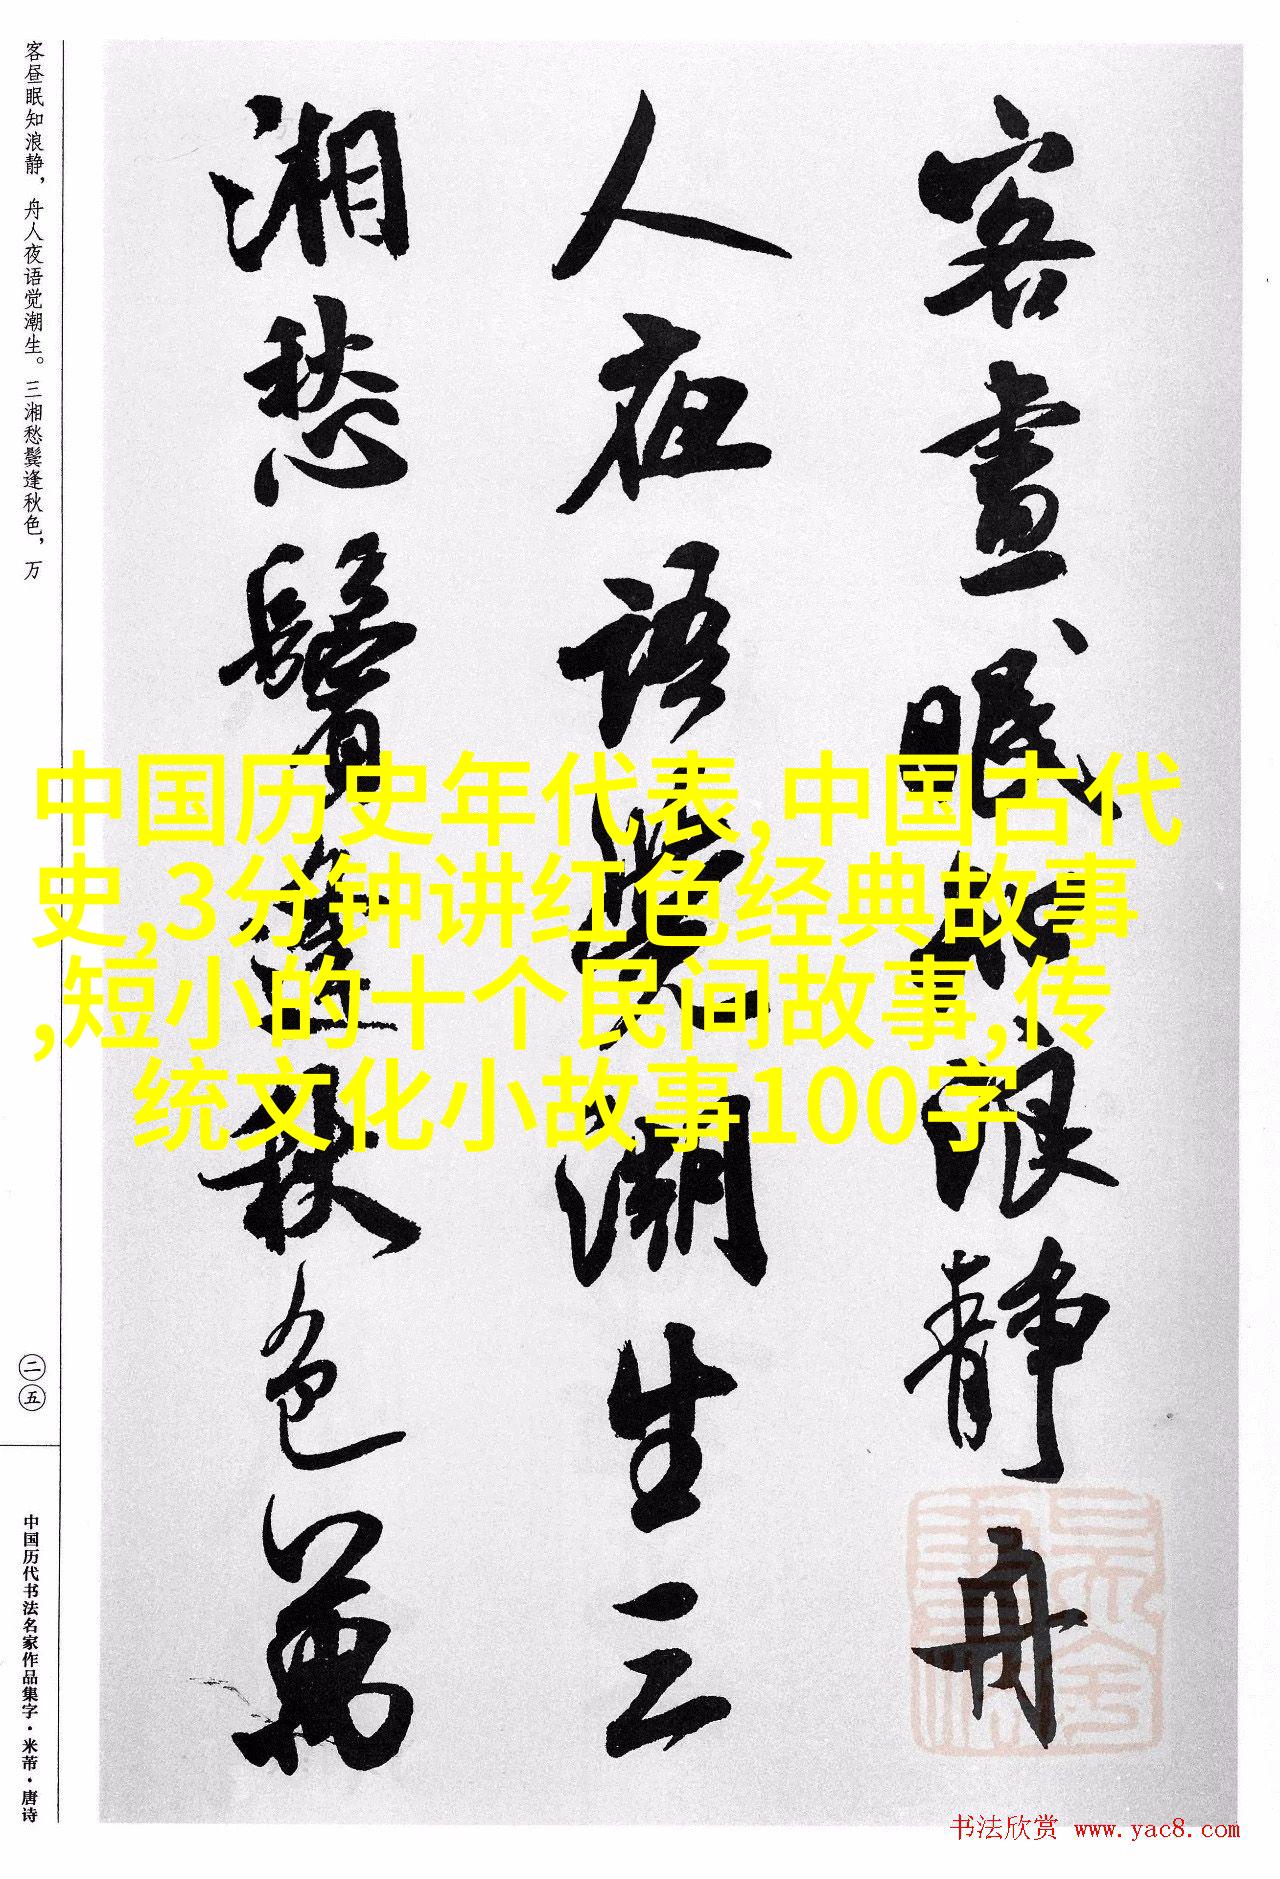 客昼眠知浪静，舟人夜语觉潮生。三湘愁鬓逢秋色，万
客晝眠知浪静舟
人夜语覺潮生三
湘愁鬢逢秋色萬
中国历史年代表,中国古代
史,3分钟讲红色经典故事
,短小的十个民间故事,传
统文化小故事100字
二五
中国历代书法名家作品集字·米芾·唐诗
书法欣赏 www.yac8.com